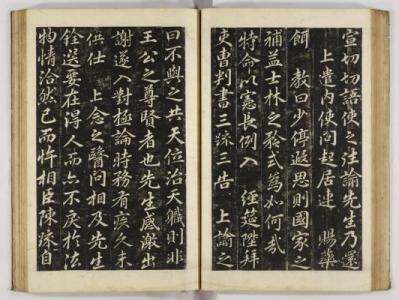 宣切切語使之往諭先生乃還
上遣內使問起居送 賜藥
餌 教曰少停遐思則國家之
補益士林之矜式為如何哉
特命以憲長例入 經筵陞拜
吏曹判書三疏三告 上諭之
曰不與之共天位治天職則非
王公之尊賢者也先生感激出
謝遂入對極論時務有疾久未
供仕 上念之醫問相及先生
銓選要在得人而亦不戾於法
物情洽然已而忤相臣陳疏自